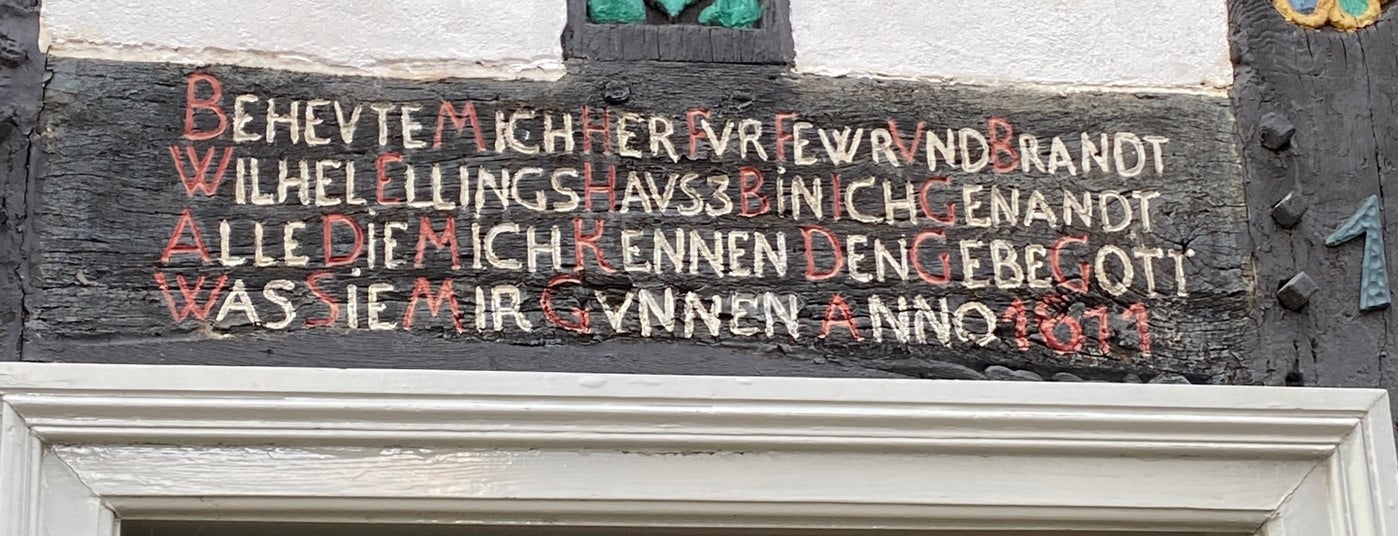 BEHEVTE MICH HER FVR FEWR VND BRANDT
WILHEL ELLINGS HAVSZ BIN ICH GENANDT
ALLE DIE MICH KENNEN DEN GEBE GOTT
WAS SIE MIR GVNNEN ANNO 1611
1